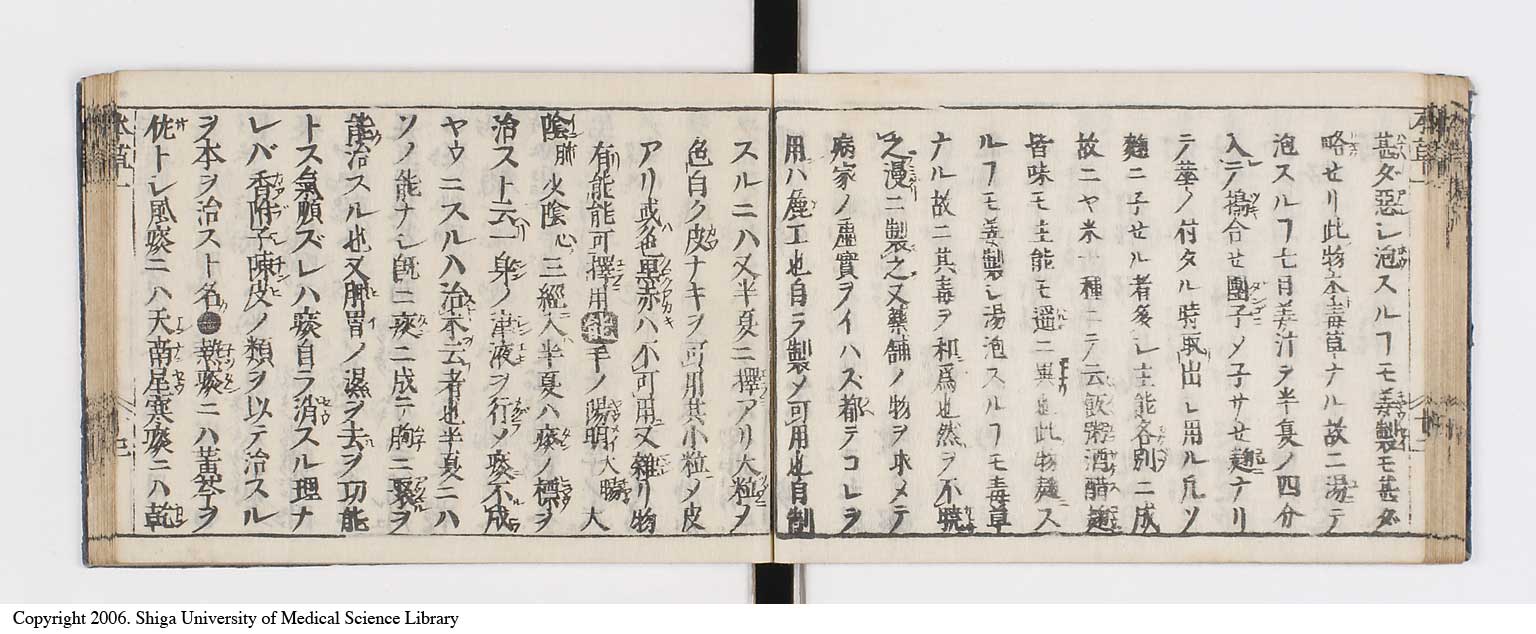 甚タ惡シ泡スルヿモ姜製モ甚ダ
略セリ此物本毒草ナル故ニ湯ニテ
泡スルヿ七日姜汁ヲ半夏ノ四分
入テ搗合セ團子メ子サセ麹ナリ
テ華ノ付タル時取出シ用ル凡ソ
麹ニ子セル者多シ主能各別ニ成
故ニヤ米 種ニテ云飲粥酒醋麹
皆味モ主能モ遥ニ異也此物麹ス
ルヿモ姜製シ湯泡スルヿモ毒草
ナル故ニ其毒ヲ和爲也然ヲ不曉
之漫ニ製之又藥舗ノ物ヲ求メテ
病家ノ虚實ヲイハズ都テコレヲ
用ハ麁工也自ラ製メ可用也自制
スルニハ又半夏ニ擇アリ大粒メ
色白ク皮ナキヲ可用其小粒メ皮
アリ或色黒赤ハ不可用又雑リ物
有能能可擇用 手ノ陽明大腸大
陰肺火陰心三經入半夏ハ痰ノ標ヲ
治スト云一身ノ津液ヲ行メ痰不成
ヤウニスルハ治本云者也半夏ニハ
ソノ能ナシ既ニ痰ニ成テ胸ニ聚ヲ
能治スル也又脾胃ノ濕ヲ去ヲ功能
トス氣順ズレハ痰自ラ消スル理ナ
レバ香附子陳皮ノ類ヲ以テ治スル
ヲ本ヲ治スト名●熱痰ニハ黄芩ヲ
佐トシ風痰ニハ天南星寒痰ニハ乾
Copyright 2006. Shiga University of Medical Science Library